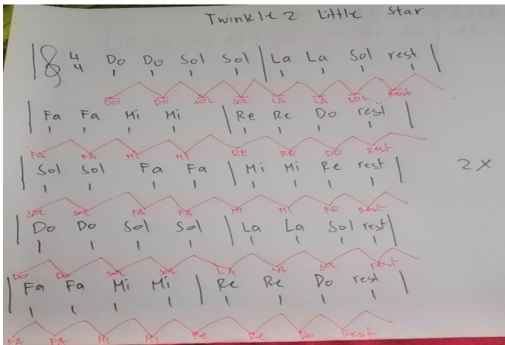 Twinkle2 Little Star
4 4 Do Do Sol Sol | La La Sol rest |
DO DO SOL SOL LA LA SOL Rest
| Fa Fa Mi Mi | Re Re Do rest |
FA FA MI MI RE RE DO Rest
| Sol Sol Fa Fa | Mi Mi Re rest | 2x
SOL SOL FA FA MI MI RE Rest
| Do Do Sol Sol | La La Sol rest |
DO DO SOL SOL LA LA SOL rest
| Fa Fa Mi Mi | Re Re Do rest |
FA FA MI MI Re Re Do Rest